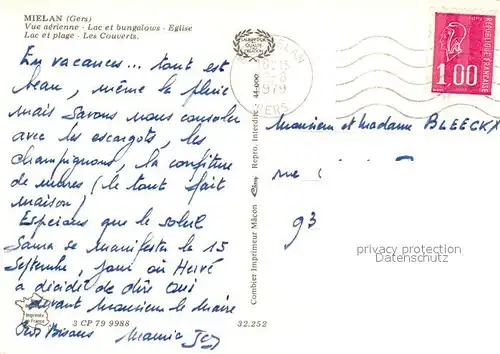 MIELAN (Gers)
Vue aérienne - Lac et bungalows - Eglise
Lac et plage - Les Couverts.
En vacances... tout est
beau, même la pluie
mais savons nous consoler
avec les escargots, les
champignons, la confiture
de mures (le tout fait
maison)
Espérons que le soleil
saura se manifester le 15
Septembre, jour où Hervé
a décidé de dire oui
devant Monsieur le Maire
Bisous Mamie
Imprimée en France
3 CP 79 9988
32.252
Combier Imprimeur Mâcon
Repro. Interdite
44-000
MIELAN
1979
GERS
REPUBLIQUE FRANÇAISE
1,00
Monsieur et Madame BLEECKX
rue
93
privacy protection
Datenschutz